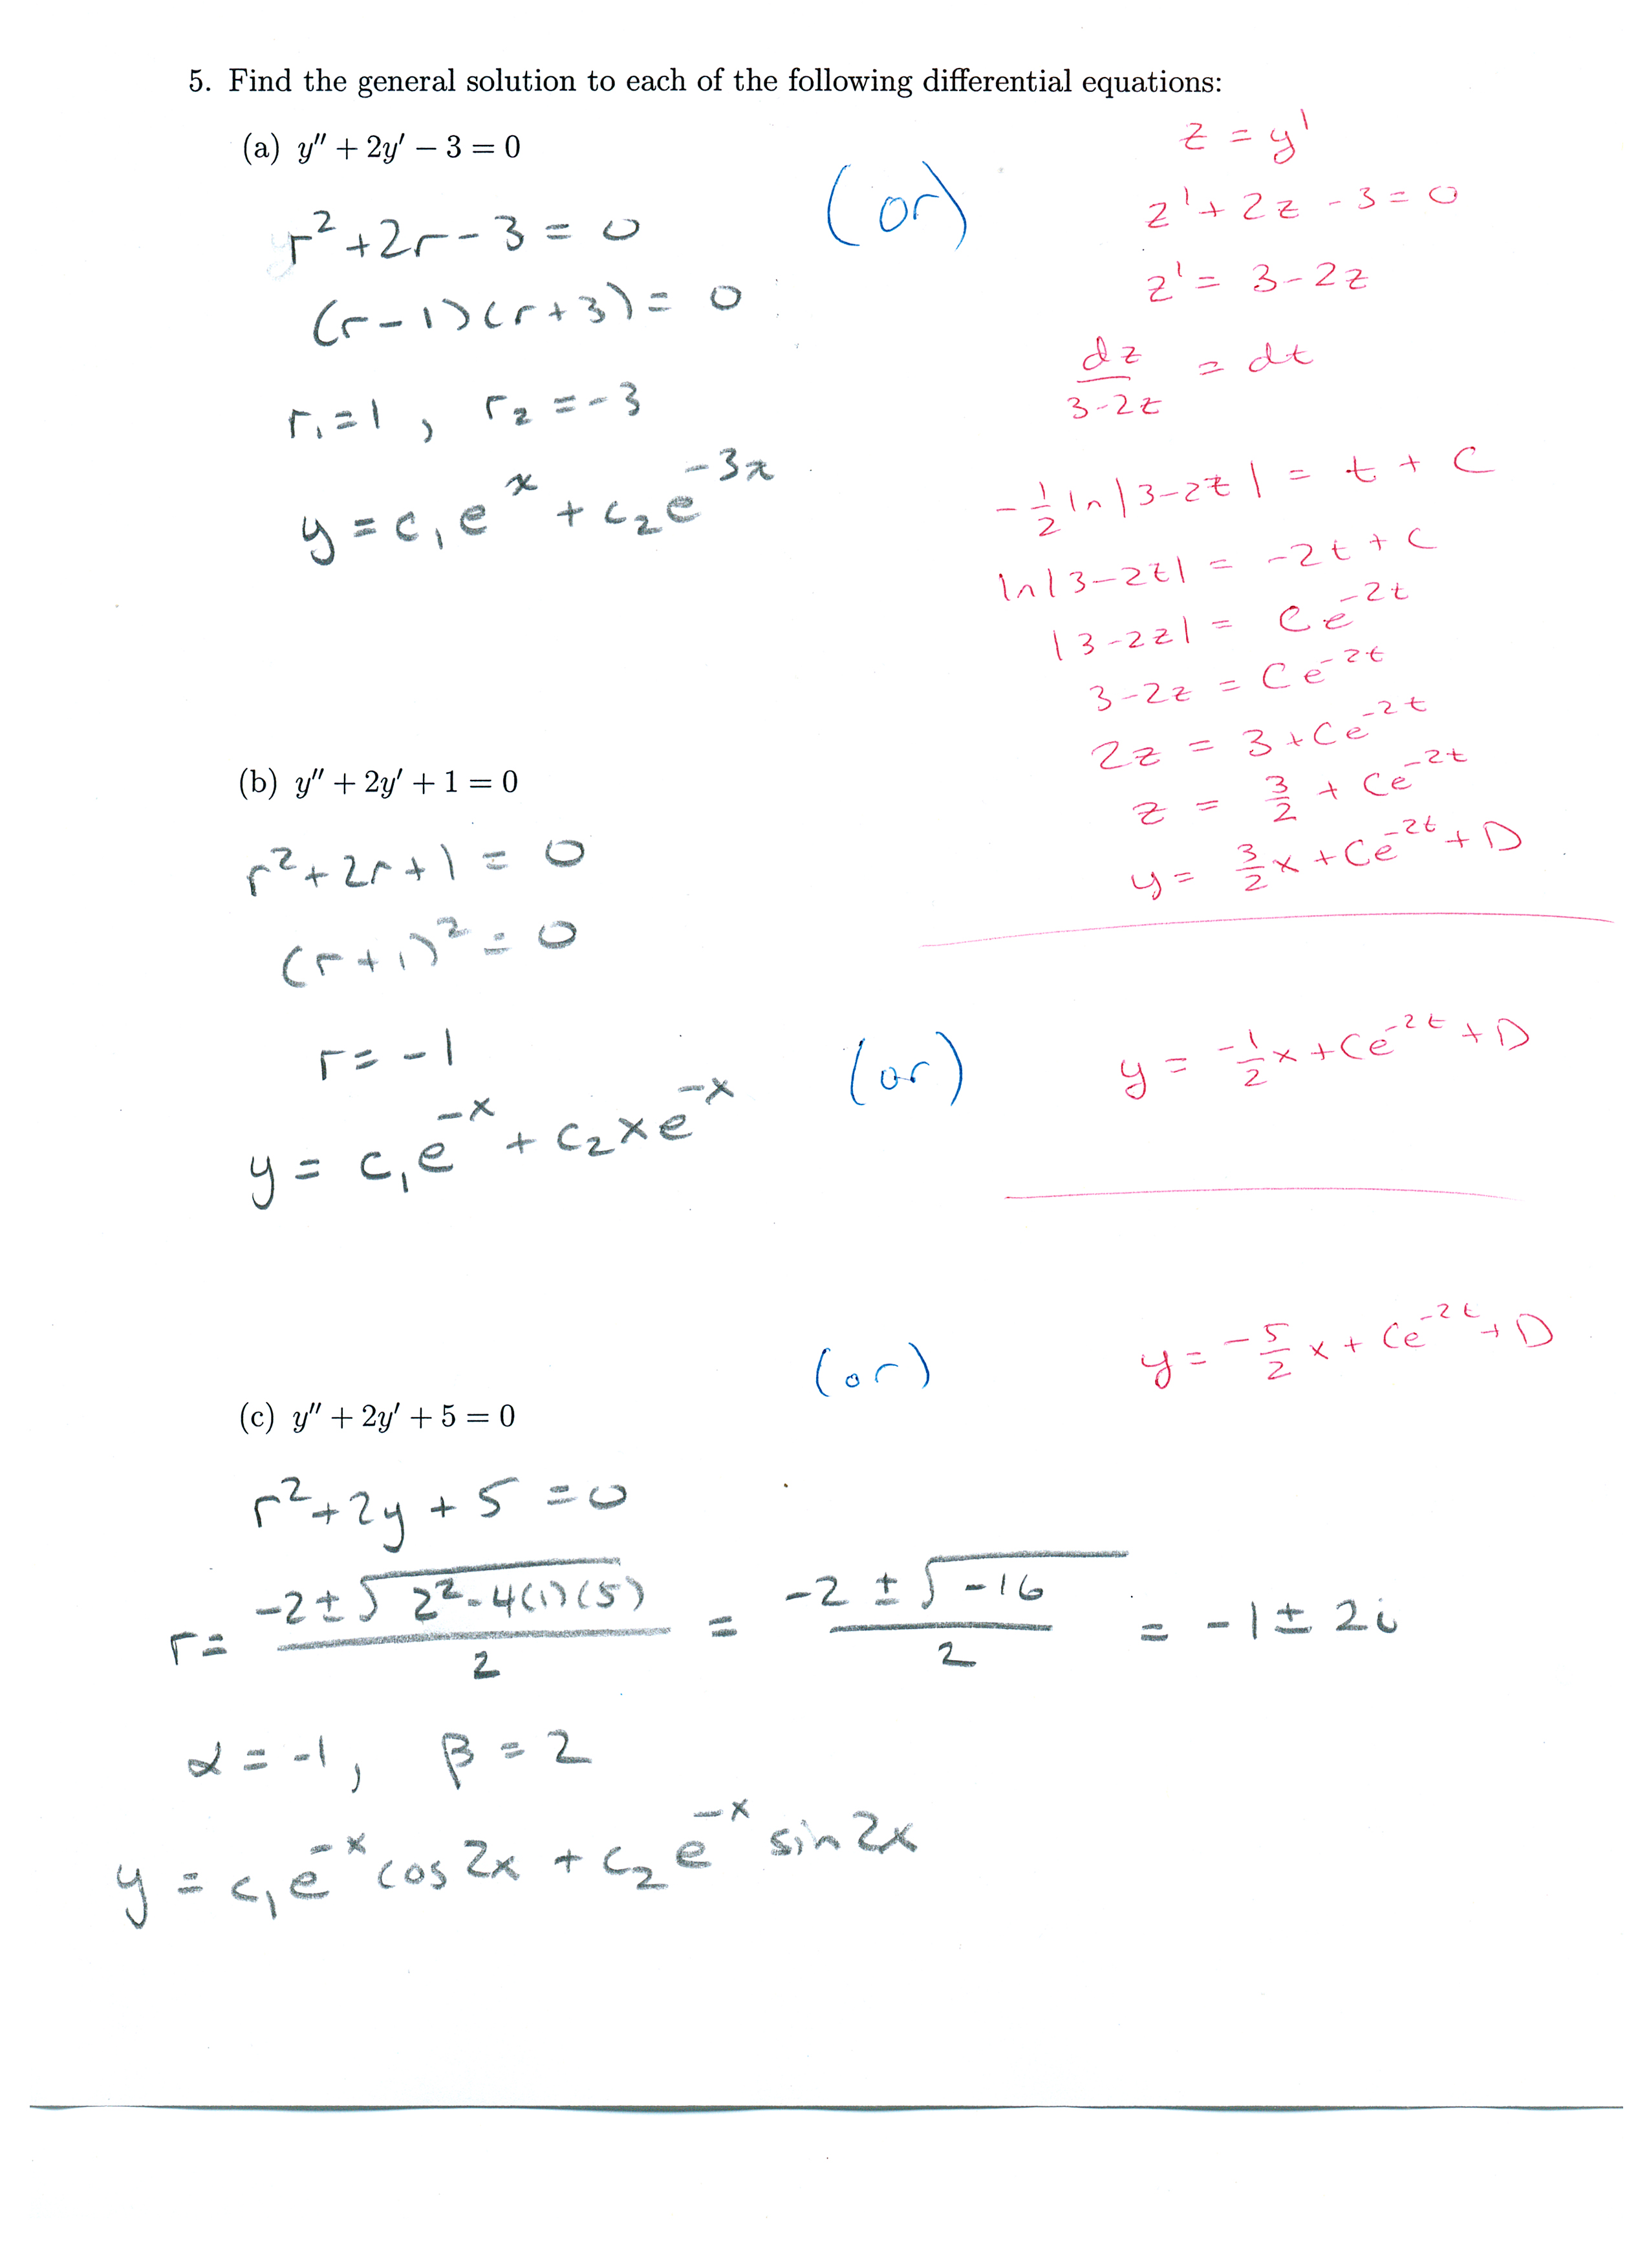 5. Find the general solution to each of the following differential equations:
(a) y″ + 2y′ − 3 = 0
r² + 2r − 3 = 0
(r − 1)(r + 3) = 0
r₁ = 1 , r₂ = −3
y = c₁e^x + c₂e^−3x
(or)
z = y′
z′ + 2z − 3 = 0
z′ = 3 − 2z
dz/(3 − 2z) = dt
−1/2 ln|3 − 2z| = t + C
ln|3 − 2z| = −2t + C
|3 − 2z| = Ce^−2t
3 − 2z = Ce^−2t
2z = 3 + Ce^−2t
z = 3/2 + Ce^−2t
y = 3/2 x + Ce^−2t + D
(b) y″ + 2y′ + 1 = 0
r² + 2r + 1 = 0
(r + 1)² = 0
r = −1
y = c₁e^−x + c₂xe^−x
(or)
y = −1/2 x + Ce^−2t + D
(or)
y = −5/2 x + Ce^−2t + D
(c) y″ + 2y′ + 5 = 0
r² + 2y + 5 = 0
r = (−2 ± √(2² − 4(1)(5)))/2 = (−2 ± √−16)/2 = −1 ± 2i
α = −1, β = 2
y = c₁e^−x cos 2x + c₂e^−x sin 2x